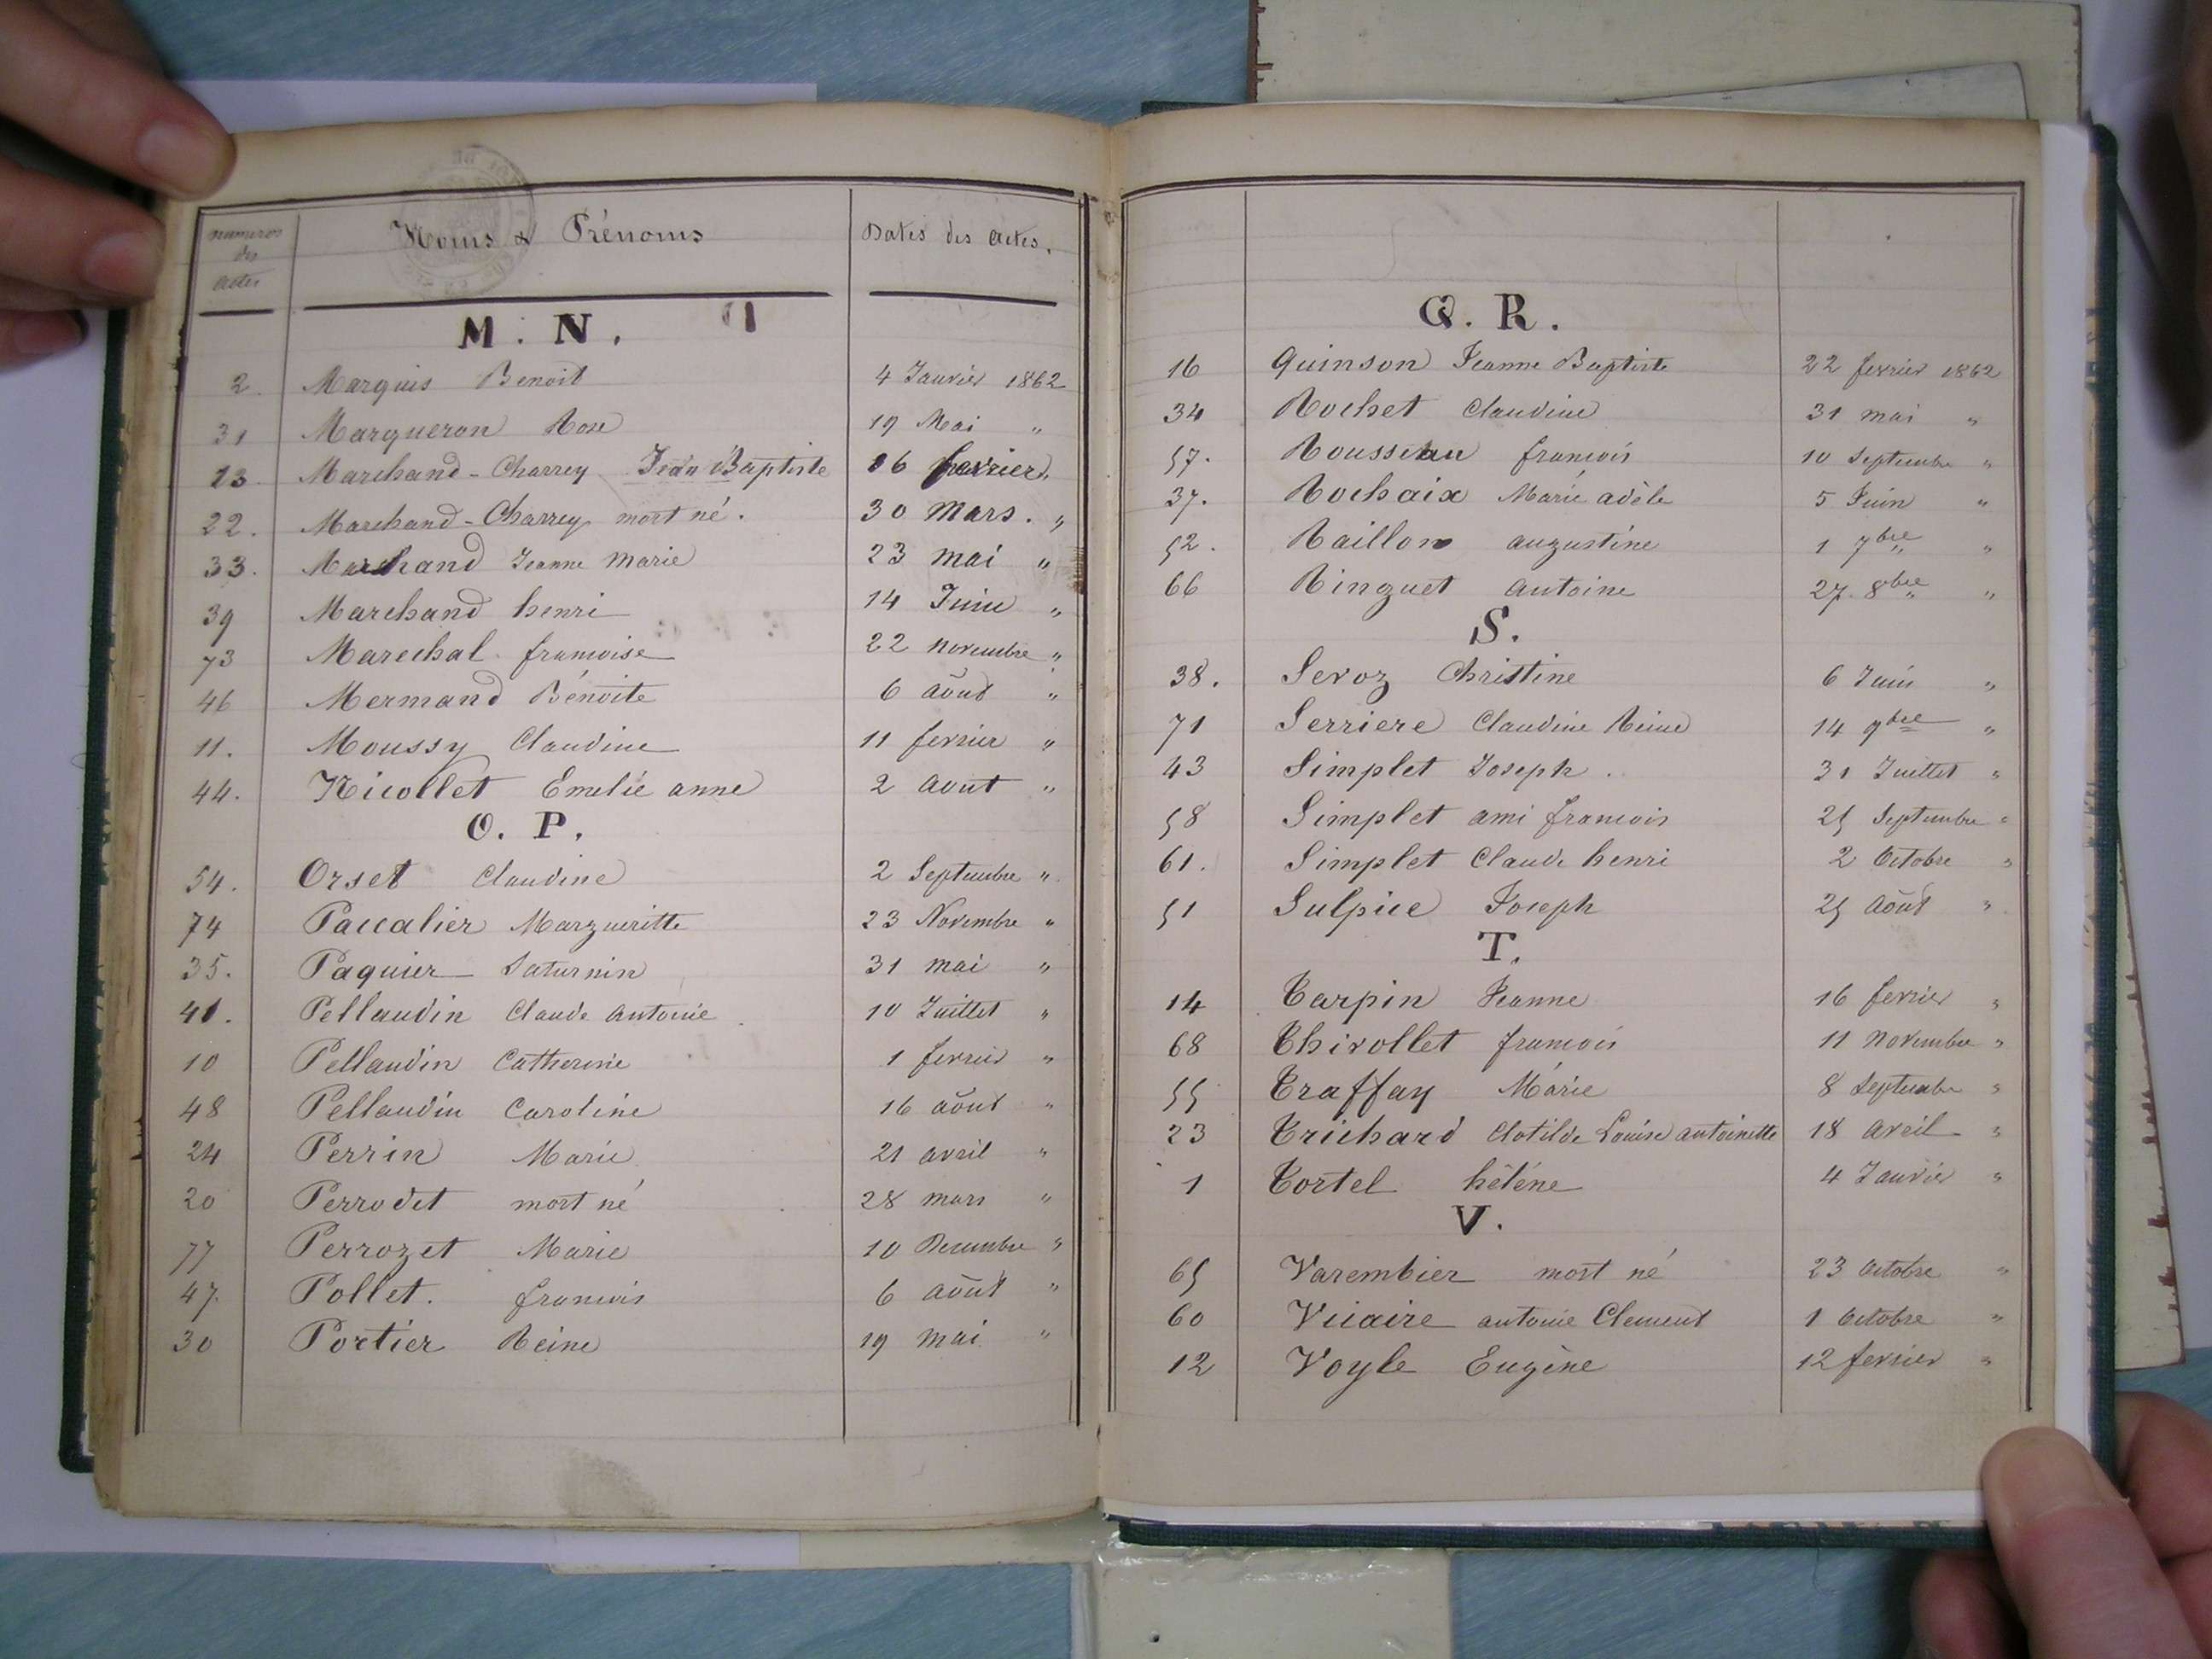 numeros des actes Noms & Prénoms Dates des actes.
M. N.
2. Marquis Benoit 4 Janvier 1862
31 Margueron Rose 19 Mai "
13. Marchand-Charrey Jean Baptiste 16 fevrier "
22. Marchand-Charrey mort né. 30 Mars. "
33. Marchand Jeanne Marie 23 mai "
39 Marchand henri 14 Juin "
73 Marechal francoise 22 novembre "
46 Mermand Bénoite 6 aôut "
11. Moussy Claudine 11 fevrier "
44. Nicollet Emelie anne 2 aout "
O. P.
54. Orset Claudine 2 Septembre "
74 Paccalier Margueritte 23 Novembre "
35. Paquier Saturnin 31 mai "
41. Pellaudin Claude Antoine 10 Juillet "
10 Pellaudin Catherine 1 fevrier "
48 Pellaudin Caroline 16 aôut "
24 Perrin Marie 21 avril "
20 Perrodet mort né 28 mars "
77 Perrozet Marie 10 Decembre "
47. Pollet. francois 6 aôut "
30 Portier Reine 19 mai "
Q. R.
16 Quinson Jeanne Baptiste 22 fevrier 1862
34 Rochet Claudine 31 mai "
57. Rousseau francois 10 Septembre "
37. Rochaix Marie adèle 5 Juin "
52. Raillon augustine 1 7bre "
66 Ringuet antoine 27. 8bre "
S.
38. Sevoz Christine 6 Juin "
71 Serriere Claudine Reine 14 9bre "
43 Simplet Joseph. 31 Juillet "
58 Simplet ami francois 25 Septembre "
61. Simplet Claude henri 2 Octobre "
51 Sulpice Joseph 25 Aôut "
T.
14 Tarpin Jeanne 16 fevrier "
68 Thivollet francois 11 Novembre "
55 Traffay Marie 8 Septembre "
23 Trichard Clotilde Louise antoinette 18 avril "
1 Tortel hélène 4 Janvier "
V.
65 Varembier mort né 23 Octobre "
60 Vicaire antoine Clement 1 Octobre "
12 Voyle Eugène 12 fevrier "